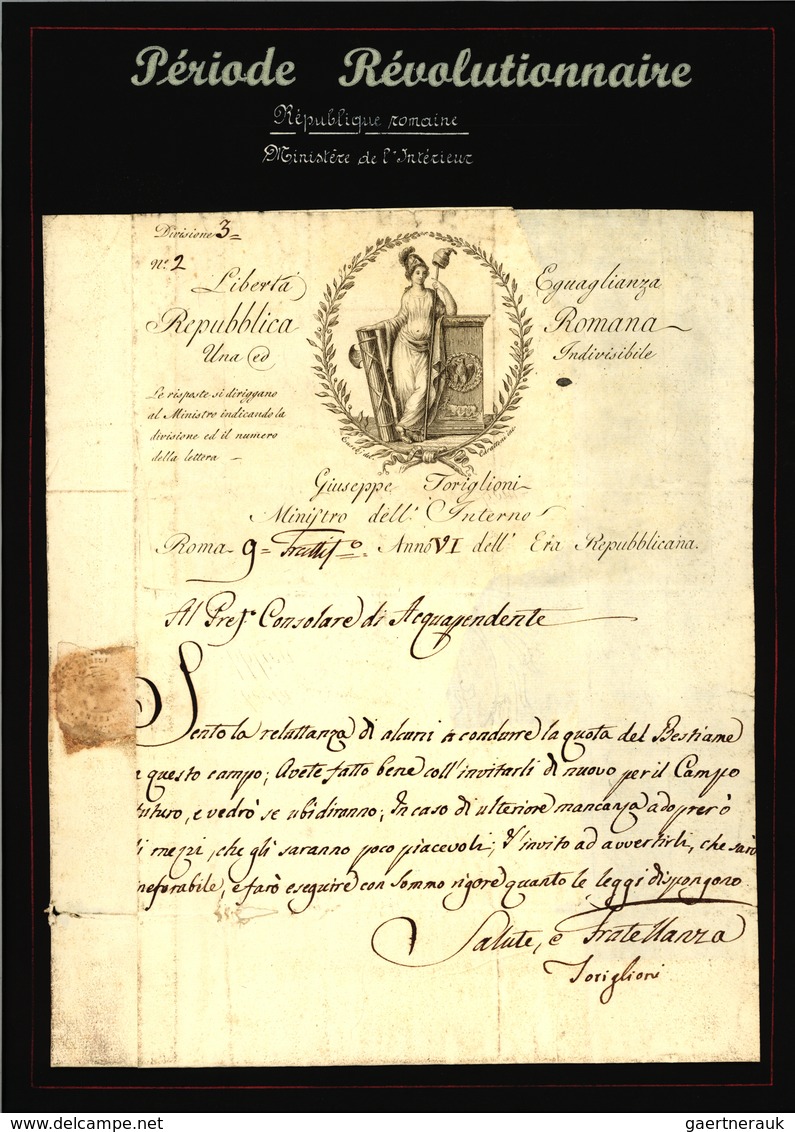 Période Révolutionnaire
République romaine
Ministère de l'Intérieur
Divisione 3=
N.° 2
Libertà Eguaglianza
Repubblica Romana
Una ed Indivisibile
Le risposte si diriggano
al Ministro indicando la
divisione ed il numero
della lettera
Giuseppe Toriglioni
Ministro dell' Interno
Roma 9= Anno VI dell' Era Repubblicana.
Al Pref. Consolare di Acquapendente
Sento la reluttanza di alcuni a condurre la quota del Bestiame
questo campo; Avete fatto bene coll'invitarli di nuovo per il Campo
futuro, e vedrò se ubidiranno; In caso di ulteriore mancanza adoprerò
li mezzi, che gli saranno poco piacevoli; V'invito ad avvertirli, che sarò
inesorabile, e farò eseguire con sommo rigore quanto le leggi dispongono
Salute, e Fratellanza
Toriglioni
www.delcampe.net gaertnerauk